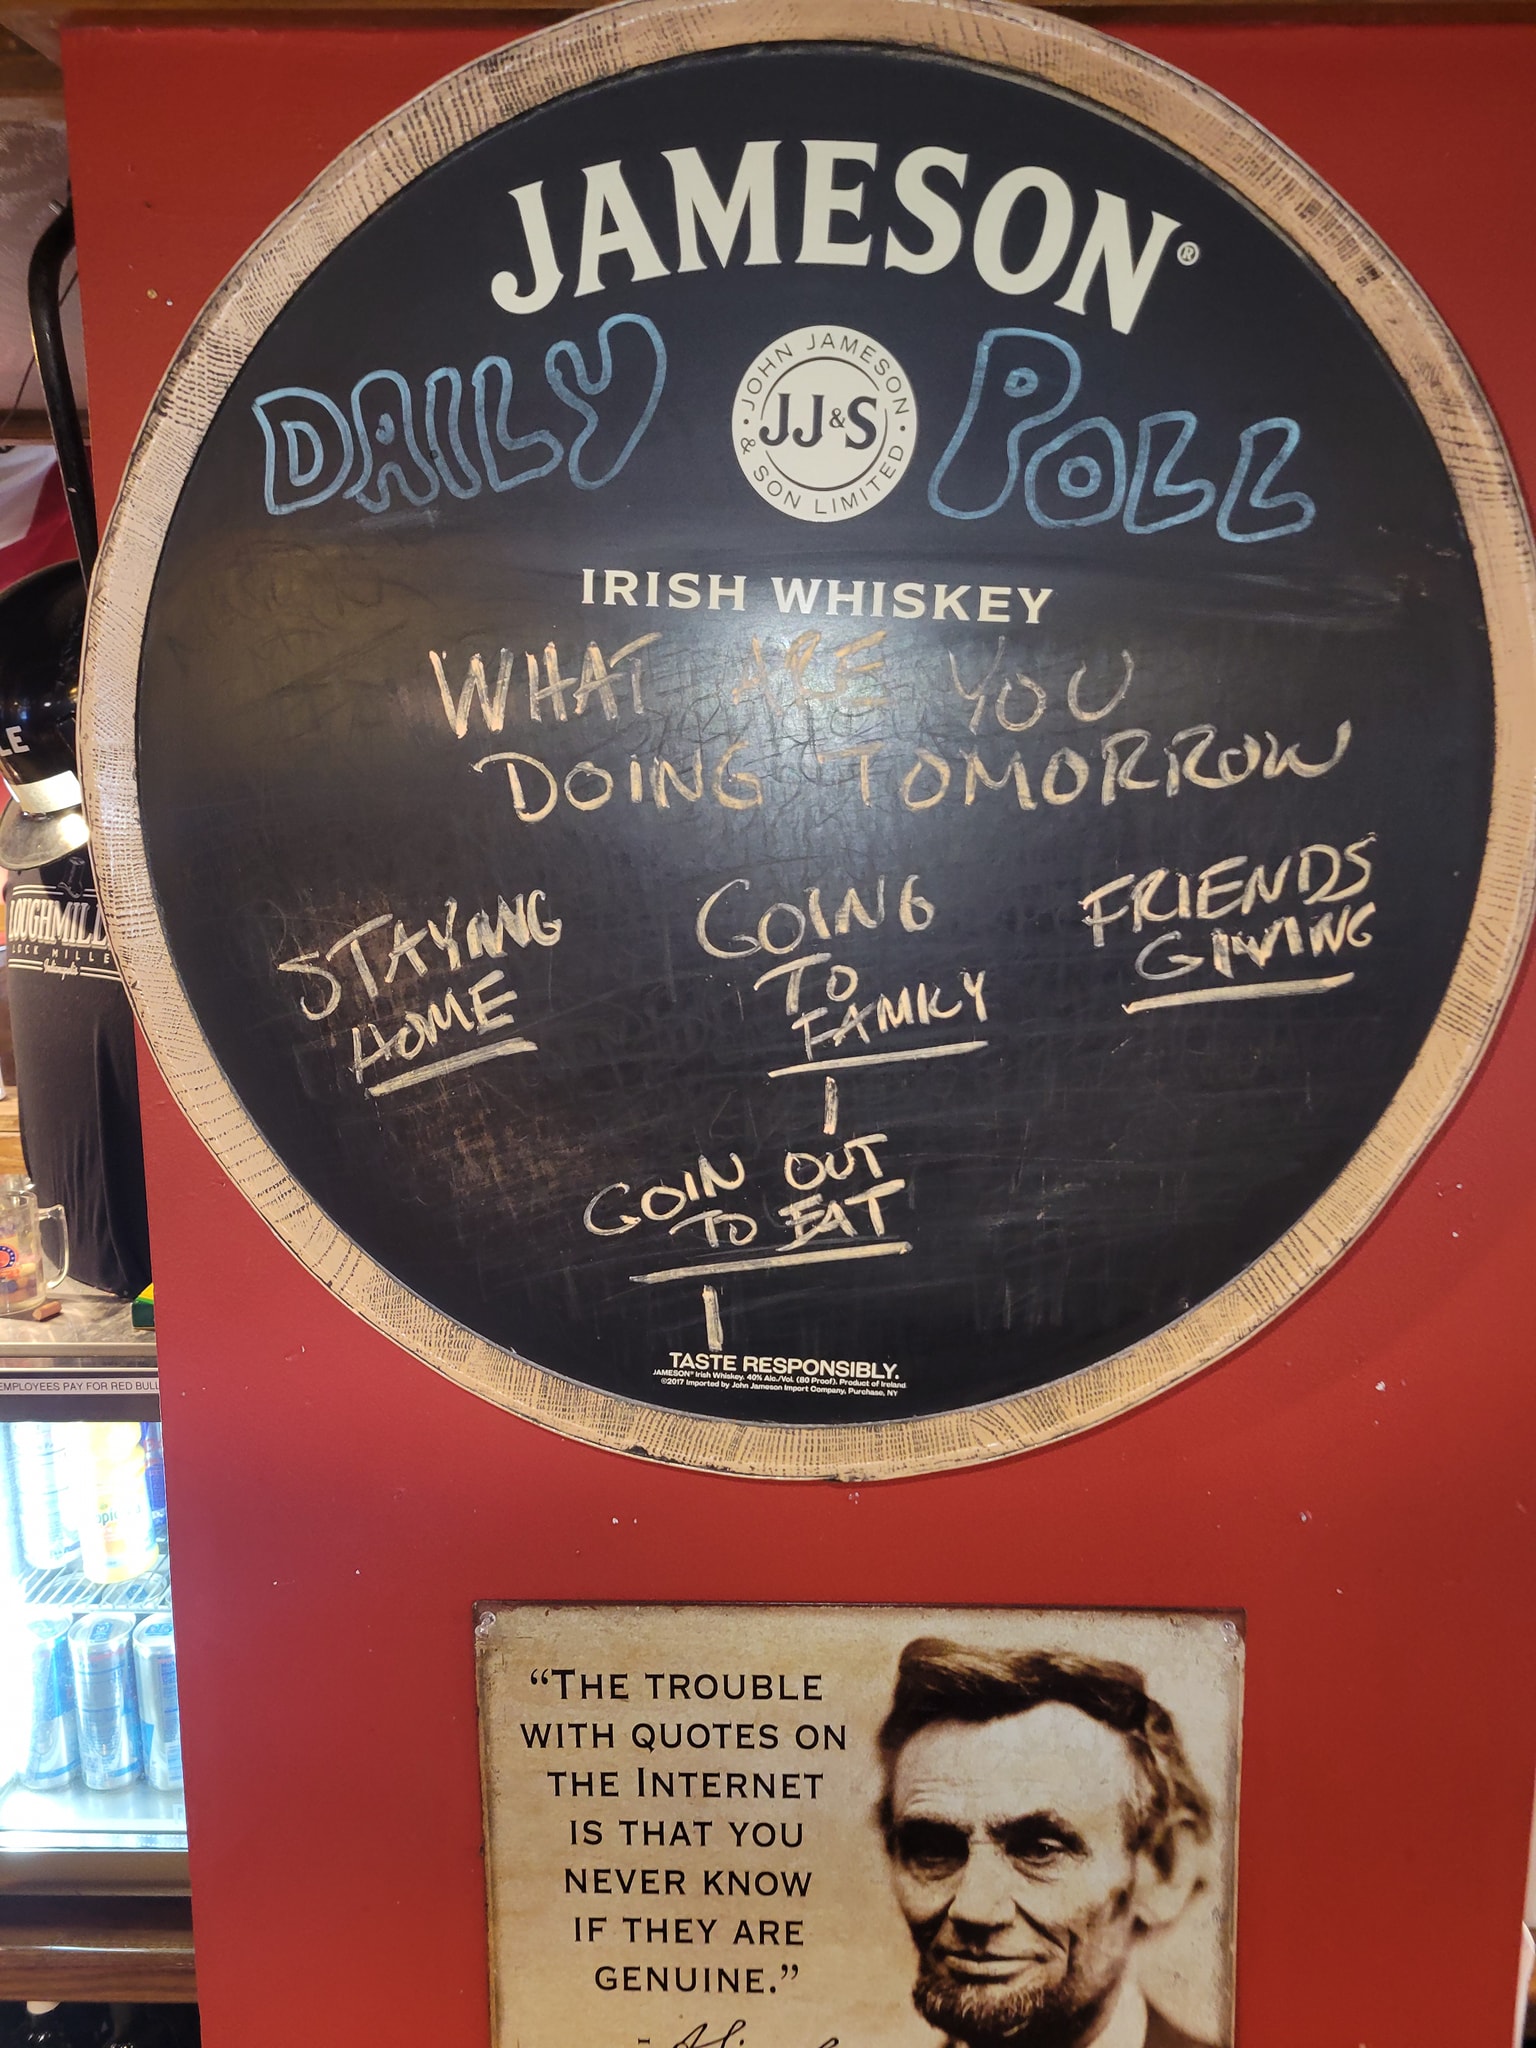 JAMESON®
DAILY POLL
JOHN JAMESON
JJ&S
& SON LIMITED
IRISH WHISKEY
WHAT ARE YOU
DOING TOMORROW
STAYING
HOME
GOING
TO
FAMILY
FRIENDS
GIVING
GOIN OUT
TO EAT
TASTE RESPONSIBLY.
JAMESON® Irish Whiskey. 40% Alc./Vol. (80 Proof). Product of Ireland.
©2017 Imported by John Jameson Import Company, Purchase, NY
LE
LOUGHMILL
LOCK MILLE
EMPLOYEES PAY FOR RED BULL
“THE TROUBLE
WITH QUOTES ON
THE INTERNET
IS THAT YOU
NEVER KNOW
IF THEY ARE
GENUINE.”